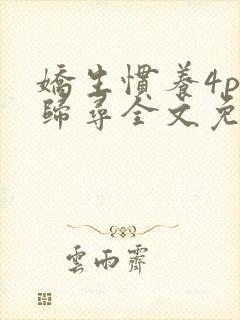 嬌生慣養4p
歸尋全文免
雲雨霽